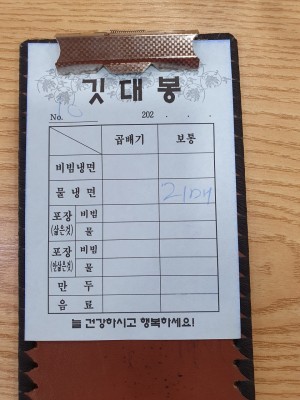 깃대봉
No. 202 . . .
곱배기 보통
비빔냉면
물냉면
포장 비빔
(삶은것) 물
포장 비빔
(안삶은것) 물
만두
음료
늘 건강하시고 행복하세요!